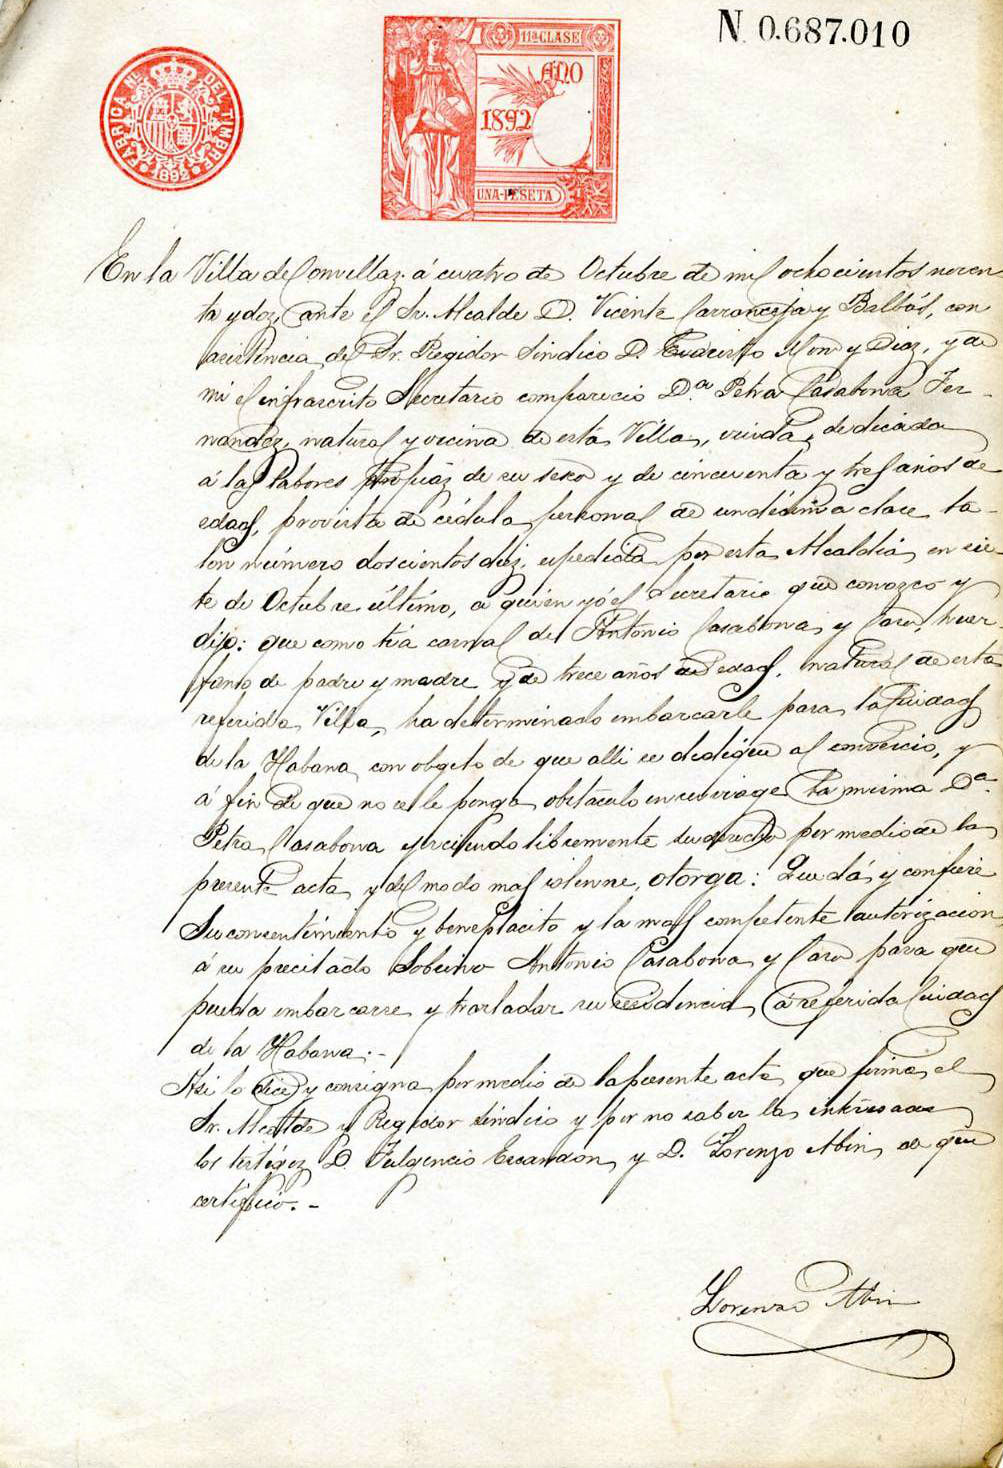 N 0.687.010
FABRICA NL. DEL TIMBRE
1892
11ª CLASE
AÑO
1892
UNA-PESETA
En la Villa de Comillas á cuatro de Octubre de mil ochocientos noven
ta y dos, ante el Sr. Alcalde D. Vicente Carranceja y Balbás, con
asistencia del Sr. Regidor Sindico D. Evaristo Mon y Diaz, y de
mi el infrascrito Secretario comparecio D.ª Petra Casabona Fer-
nandez, natural y vecina de esta Villa, viuda, dedicada
á las labores propias de su sexo y de cincuenta y tres años de
edad, provista de cédula personal de undécima clase ta-
lon número doscientos diez, expedida por esta Alcaldia, en sie
te de Octubre último, a quien yó el Secretario que conozco y
dijo: que como tia carnal de Antonio Casabona y Caro, huer-
fano de padre y madre y de trece años de edad, natural de esta
referida Villa, ha determinado embarcarle para la Ciudad
de la Habana, con obgeto de que alli se dedique al comercio, y
á fin de que no se le ponga obstáculo en su viage la misma D.ª
Petra Casabona y libremente su derecho por medio de la
presente acta, y del modo mas solenne, otorga: Que dá y confiere
su consentimiento y beneplacito y la mas competente autorizacion
á su precitado Sobrino Antonio Casabona y Caro para que
pueda embarcarse y trasladar su residencia, á referida Ciudad
de la Habana.-
Asi lo dice y consigna por medio de la presente acta que firma, el
Sr. Alcalde y Regidor Sindico y por no saber la interesada
los testigos D. Fulgencio Escandon, y D. Lorenzo Abin, de que
certifico.-
Lorenzo Abin